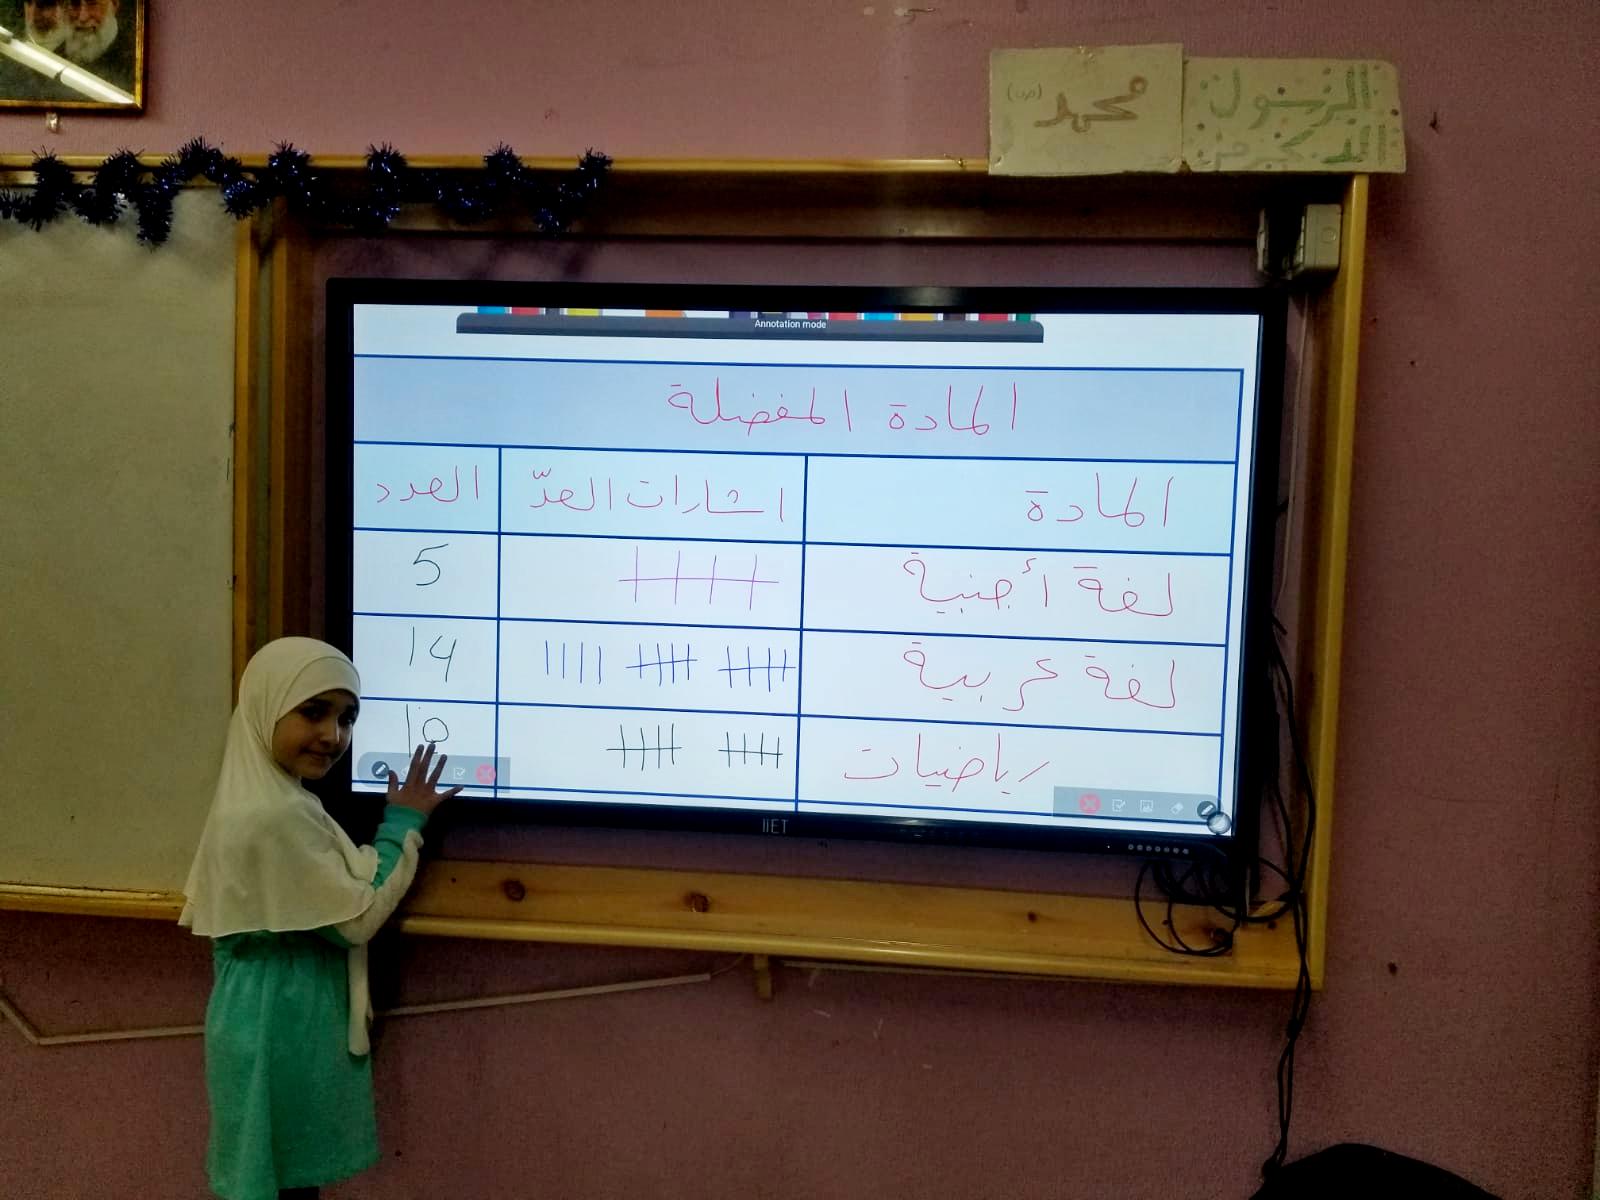 محمد (ص)
الرسول
Annotation mode
المادة المفضلة
المادة اشارات العدّ العدد
لغة أجنبية 5
لغة عربية 14
رياضيات 10
IIET